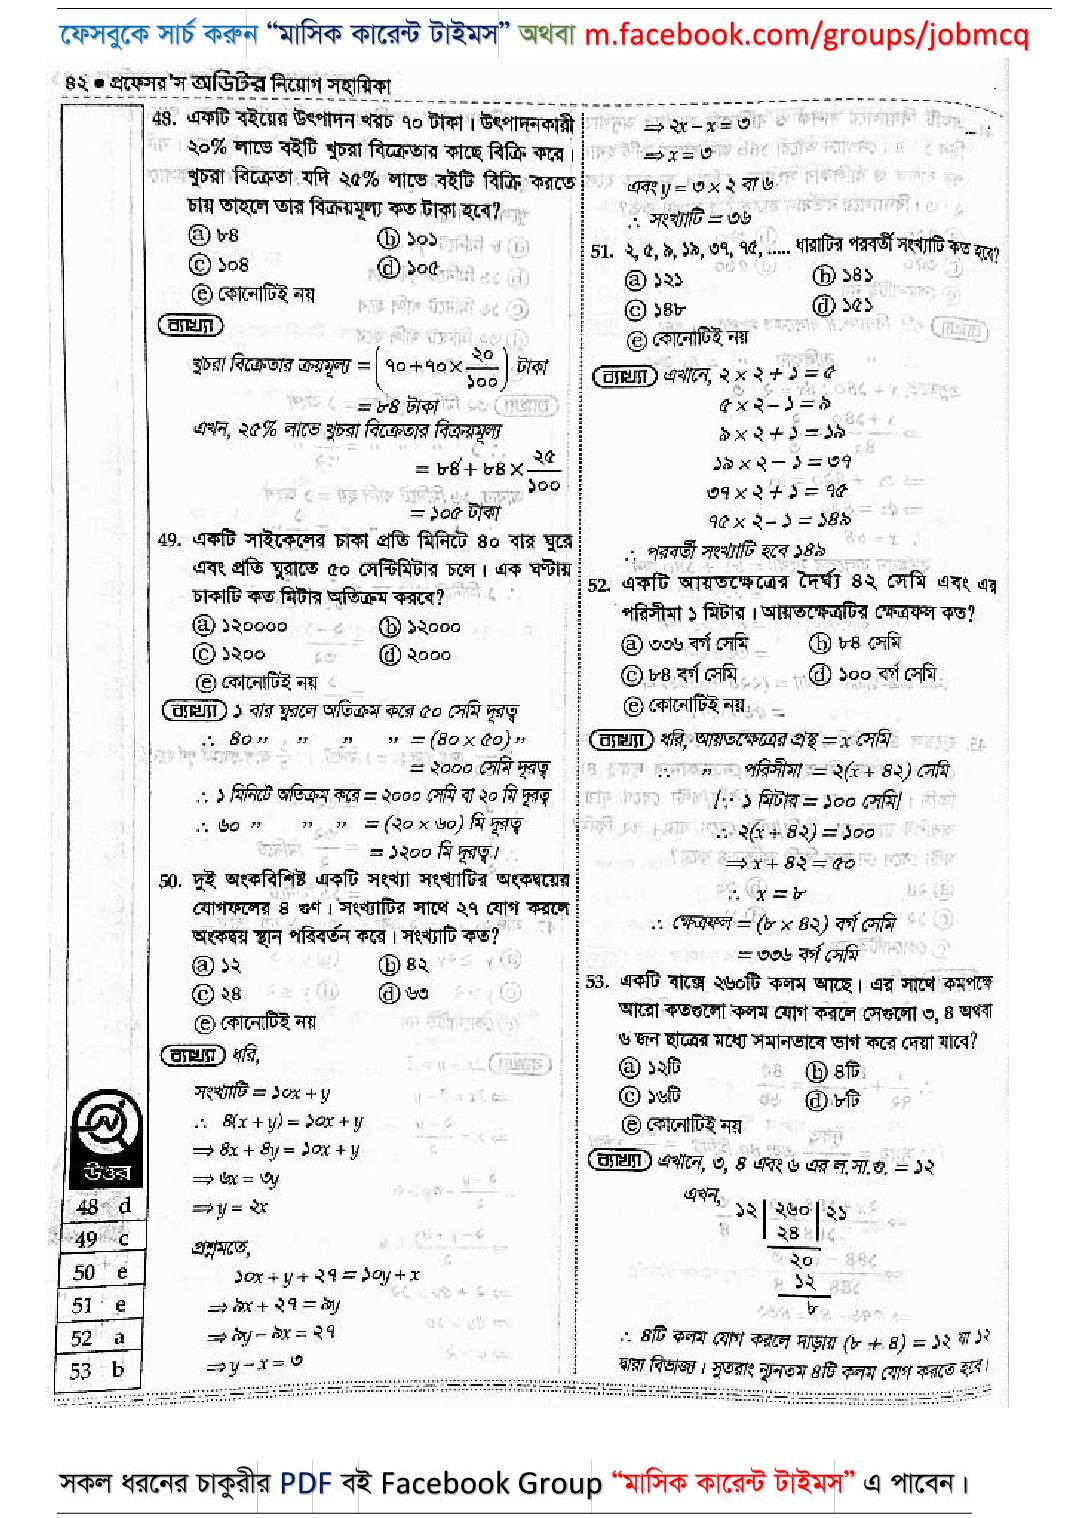 ফেসবুকে সার্চ করুন “মাসিক কারেন্ট টাইমস” অথবা m.facebook.com/groups/jobmcq
৪২ ● প্রফেসর'স অডিটর নিয়োগ সহায়িকা
48. একটি বইয়ের উৎপাদন খরচ ৭০ টাকা। উৎপাদনকারী
২০% লাভে বইটি খুচরা বিক্রেতার কাছে বিক্রি করে।
খুচরা বিক্রেতা যদি ২৫% লাভে বইটি বিক্রি করতে
চায় তাহলে তার বিক্রয়মূল্য কত টাকা হবে?
ⓐ ৮৪ ⓑ ১০১
ⓒ ১০৪ ⓓ ১০৫
ⓔ কোনোটিই নয়
ব্যাখ্যা
খুচরা বিক্রেতার ক্রয়মূল্য = (৭০+৭০×২০/১০০) টাকা
= ৮৪ টাকা
এখন, ২৫% লাভে খুচরা বিক্রেতার বিক্রয়মূল্য
= ৮৪ + ৮৪ × ২৫/১০০
= ১০৫ টাকা
49. একটি সাইকেলের চাকা প্রতি মিনিটে ৪০ বার ঘুরে
এবং প্রতি ঘুরাতে ৫০ সেন্টিমিটার চলে। এক ঘণ্টায়
চাকাটি কত মিটার অতিক্রম করবে?
ⓐ ১২০০০০ ⓑ ১২০০০
ⓒ ১২০০ ⓓ ২০০০
ⓔ কোনোটিই নয়
ব্যাখ্যা ১ বার ঘুরলে অতিক্রম করে ৫০ সেমি দূরত্ব
∴ ৪০ ” ” ” ” = (৪০ × ৫০) ”
= ২০০০ সেমি দূরত্ব
∴ ১ মিনিটে অতিক্রম করে = ২০০০ সেমি বা ২০ মি দূরত্ব
∴ ৬০ ” ” ” = (২০ × ৬০) মি দূরত্ব
= ১২০০ মি দূরত্ব।
50. দুই অংকবিশিষ্ট একটি সংখ্যা সংখ্যাটির অংকদ্বয়ের
যোগফলের ৪ গুণ। সংখ্যাটির সাথে ২৭ যোগ করলে
অংকদ্বয় স্থান পরিবর্তন করে। সংখ্যাটি কত?
ⓐ ১২ ⓑ ৪২
ⓒ ২৪ ⓓ ৬৩
ⓔ কোনোটিই নয়
ব্যাখ্যা ধরি,
সংখ্যাটি = ১০x + y
∴ ৪(x + y) = ১০x + y
⇒ ৪x + ৪y = ১০x + y
⇒ ৬x = ৩y
⇒ y = ২x
প্রশ্নমতে,
১০x + y + ২৭ = ১০y + x
⇒ ৯x + ২৭ = ৯y
⇒ ৯y – ৯x = ২৭
⇒ y – x = ৩
⇒ ২x – x = ৩
⇒ x = ৩
এবং y = ৩ × ২ বা ৬
∴ সংখ্যাটি = ৩৬
51. ২, ৫, ৯, ১৯, ৩৭, ৭৫, ..... ধারাটির পরবর্তী সংখ্যাটি কত হবে?
ⓐ ১২১ ⓑ ১৪১
ⓒ ১৪৮ ⓓ ১৫১
ⓔ কোনোটিই নয়
ব্যাখ্যা এখানে, ২ × ২ + ১ = ৫
৫ × ২ – ১ = ৯
৯ × ২ + ১ = ১৯
১৯ × ২ – ১ = ৩৭
৩৭ × ২ + ১ = ৭৫
৭৫ × ২ – ১ = ১৪৯
∴ পরবর্তী সংখ্যাটি হবে ১৪৯
52. একটি আয়তক্ষেত্রের দৈর্ঘ্য ৪২ সেমি এবং এর
পরিসীমা ১ মিটার। আয়তক্ষেত্রটির ক্ষেত্রফল কত?
ⓐ ৩৩৬ বর্গ সেমি ⓑ ৮৪ সেমি
ⓒ ৮৪ বর্গ সেমি ⓓ ১০০ বর্গ সেমি
ⓔ কোনোটিই নয়
ব্যাখ্যা ধরি, আয়তক্ষেত্রের প্রস্থ = x সেমি
∴ ” পরিসীমা = ২(x + ৪২) সেমি
[∵ ১ মিটার = ১০০ সেমি]
∴ ২(x + ৪২) = ১০০
⇒ x + ৪২ = ৫০
∴ x = ৮
∴ ক্ষেত্রফল = (৮ × ৪২) বর্গ সেমি
= ৩৩৬ বর্গ সেমি
53. একটি বাক্সে ২৬০টি কলম আছে। এর সাথে কমপক্ষে
আরো কতগুলো কলম যোগ করলে সেগুলো ৩, ৪ অথবা
৬ জন ছাত্রের মধ্যে সমানভাবে ভাগ করে দেয়া যাবে?
ⓐ ১২টি ⓑ ৪টি
ⓒ ১৬টি ⓓ ৮টি
ⓔ কোনোটিই নয়
ব্যাখ্যা এখানে, ৩, ৪ এবং ৬ এর ল.সা.গু. = ১২
এখন,
১২ | ২৬০ | ২১
২৪
২০
১২
৮
∴ ৪টি কলম যোগ করলে দাড়ায় (৮ + ৪) = ১২ যা ১২
দ্বারা বিভাজ্য। সুতরাং ন্যূনতম ৪টি কলম যোগ করতে হবে।
উত্তর
48 d
49 c
50 e
51 e
52 a
53 b
সকল ধরনের চাকুরীর PDF বই Facebook Group “মাসিক কারেন্ট টাইমস” এ পাবেন।